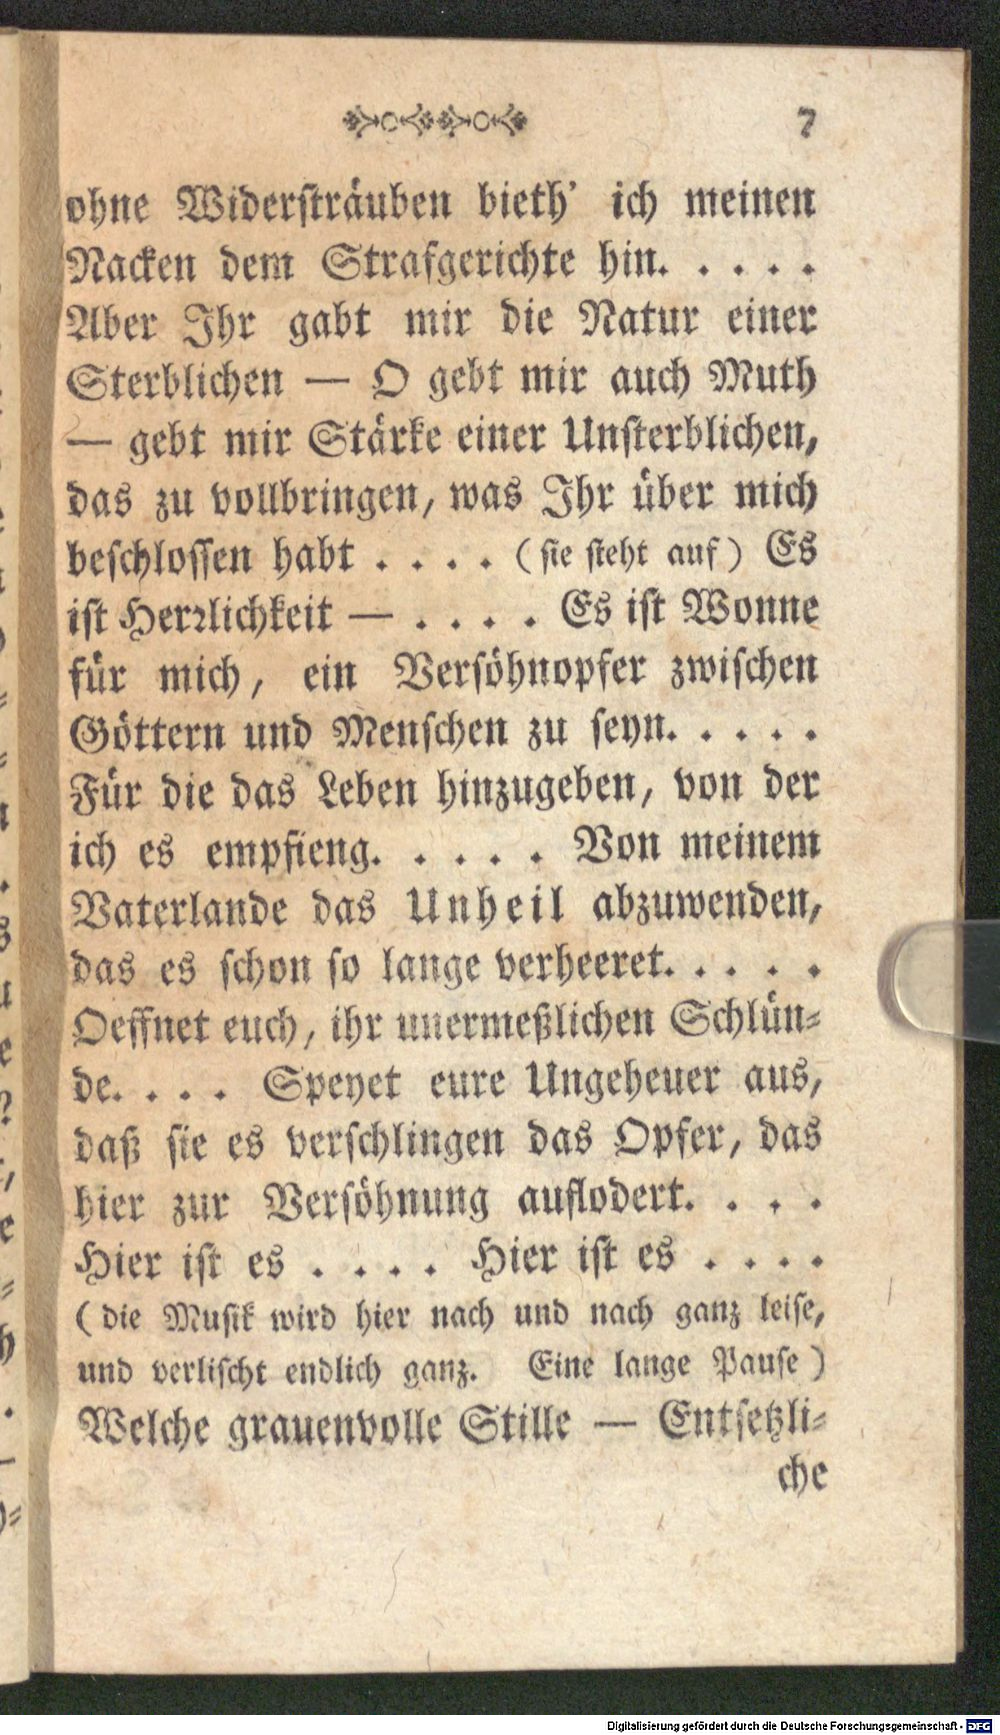 7
ohne Widersträuben bieth' ich meinen
Nacken dem Strafgerichte hin. . . . .
Aber Ihr gabt mir die Natur einer
Sterblichen — O gebt mir auch Muth
— gebt mir Stärke einer Unsterblichen,
das zu vollbringen, was Ihr über mich
beschlossen habt . . . . (sie steht auf) Es
ist Herrlichkeit — . . . . Es ist Wonne
für mich, ein Versöhnopfer zwischen
Göttern und Menschen zu seyn. . . . .
Für die das Leben hinzugeben, von der
ich es empfieng. . . . . Von meinem
Vaterlande das Unheil abzuwenden,
das es schon so lange verheeret. . . . .
Oeffnet euch, ihr unermeßlichen Schlün-
de. . . . Speyet eure Ungeheuer aus,
daß sie es verschlingen das Opfer, das
hier zur Versöhnung auflodert. . . .
Hier ist es . . . . Hier ist es . . . .
(die Musik wird hier nach und nach ganz leise,
und verlischt endlich ganz. Eine lange Pause)
Welche grauenvolle Stille — Entsetzli-
che
Digitalisierung gefördert durch die Deutsche Forschungsgemeinschaft - DFG